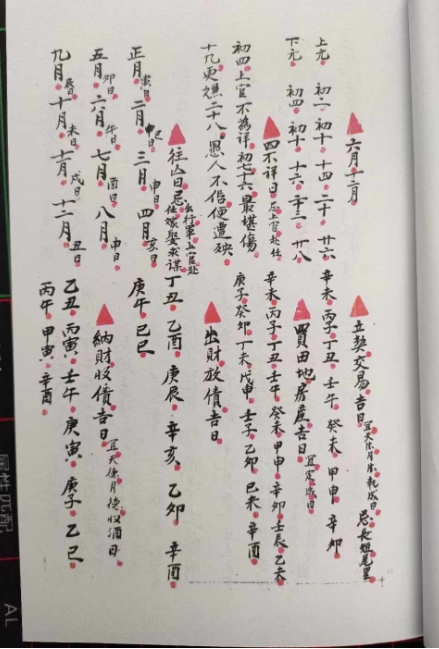 六月十二月
立契交易吉日 宜天德月德執成日 忌長短尾星
上元 初二 初十 十四 二十 廿六 辛未 丙子 丁丑 壬午 癸未 甲申 辛卯
下元 初四 初十 十六 二十三 廿八
買田地房產吉日 宜定成日
四不祥日 忌上官赴任
辛未 丙子 丁丑 壬午 癸未 甲申 辛卯 壬辰 乙未
初四上官不為祥 初七十六最堪傷
庚子 癸卯 丁未 戊申 壬子 乙卯 己未 辛酉
十九更嫌二十八 愚人不信便遭殃
出財放債吉日
往亡日忌 行軍上官赴任嫁娶求謀
丁丑 乙酉 庚辰 辛亥 乙卯 辛酉
正月寅日 二月巳日 三月申日 四月亥日
庚午 己巳
五月卯日 六月午日 七月酉日 八月申日
納財收債吉日 宜天德月德收酒日
九月辰日 十月未日 十一月戌日 十二月丑日
乙丑 丙寅 壬午 庚寅 庚子 乙巳
丙午 甲寅 辛酉
属性匹配
AL